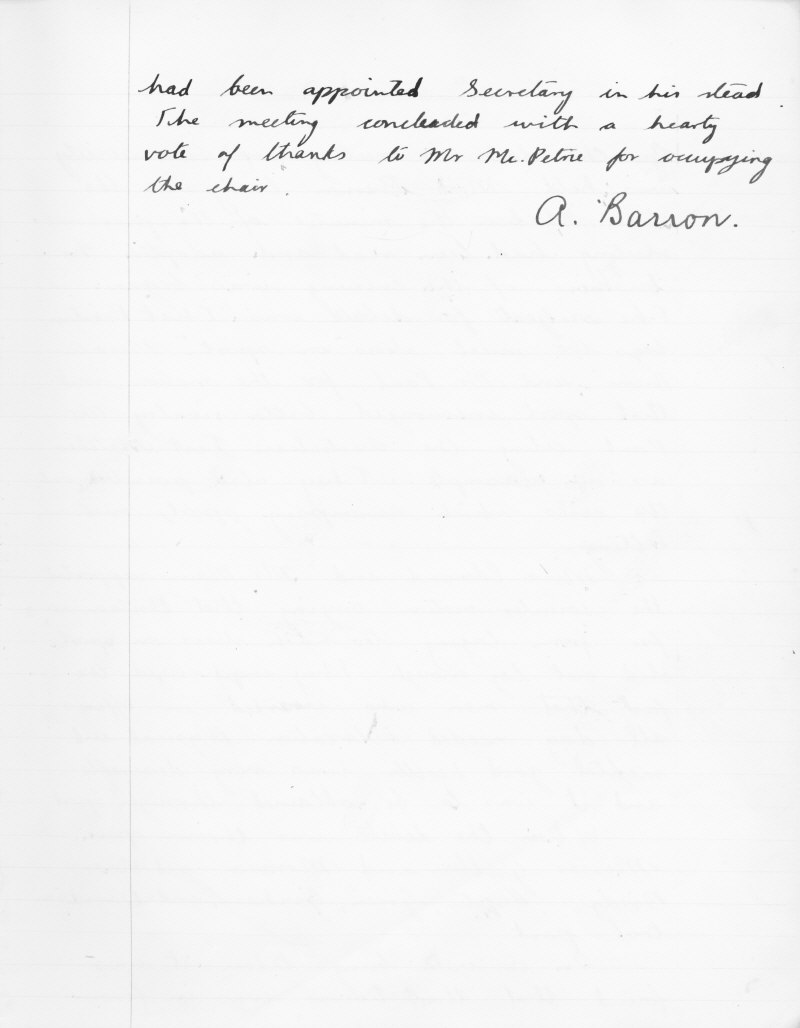 had been appointed Secretary in his stead.
The meeting concluded with a hearty
vote of thanks to Mr Mc.Petrie for occupying
the chair.
A. Barron.